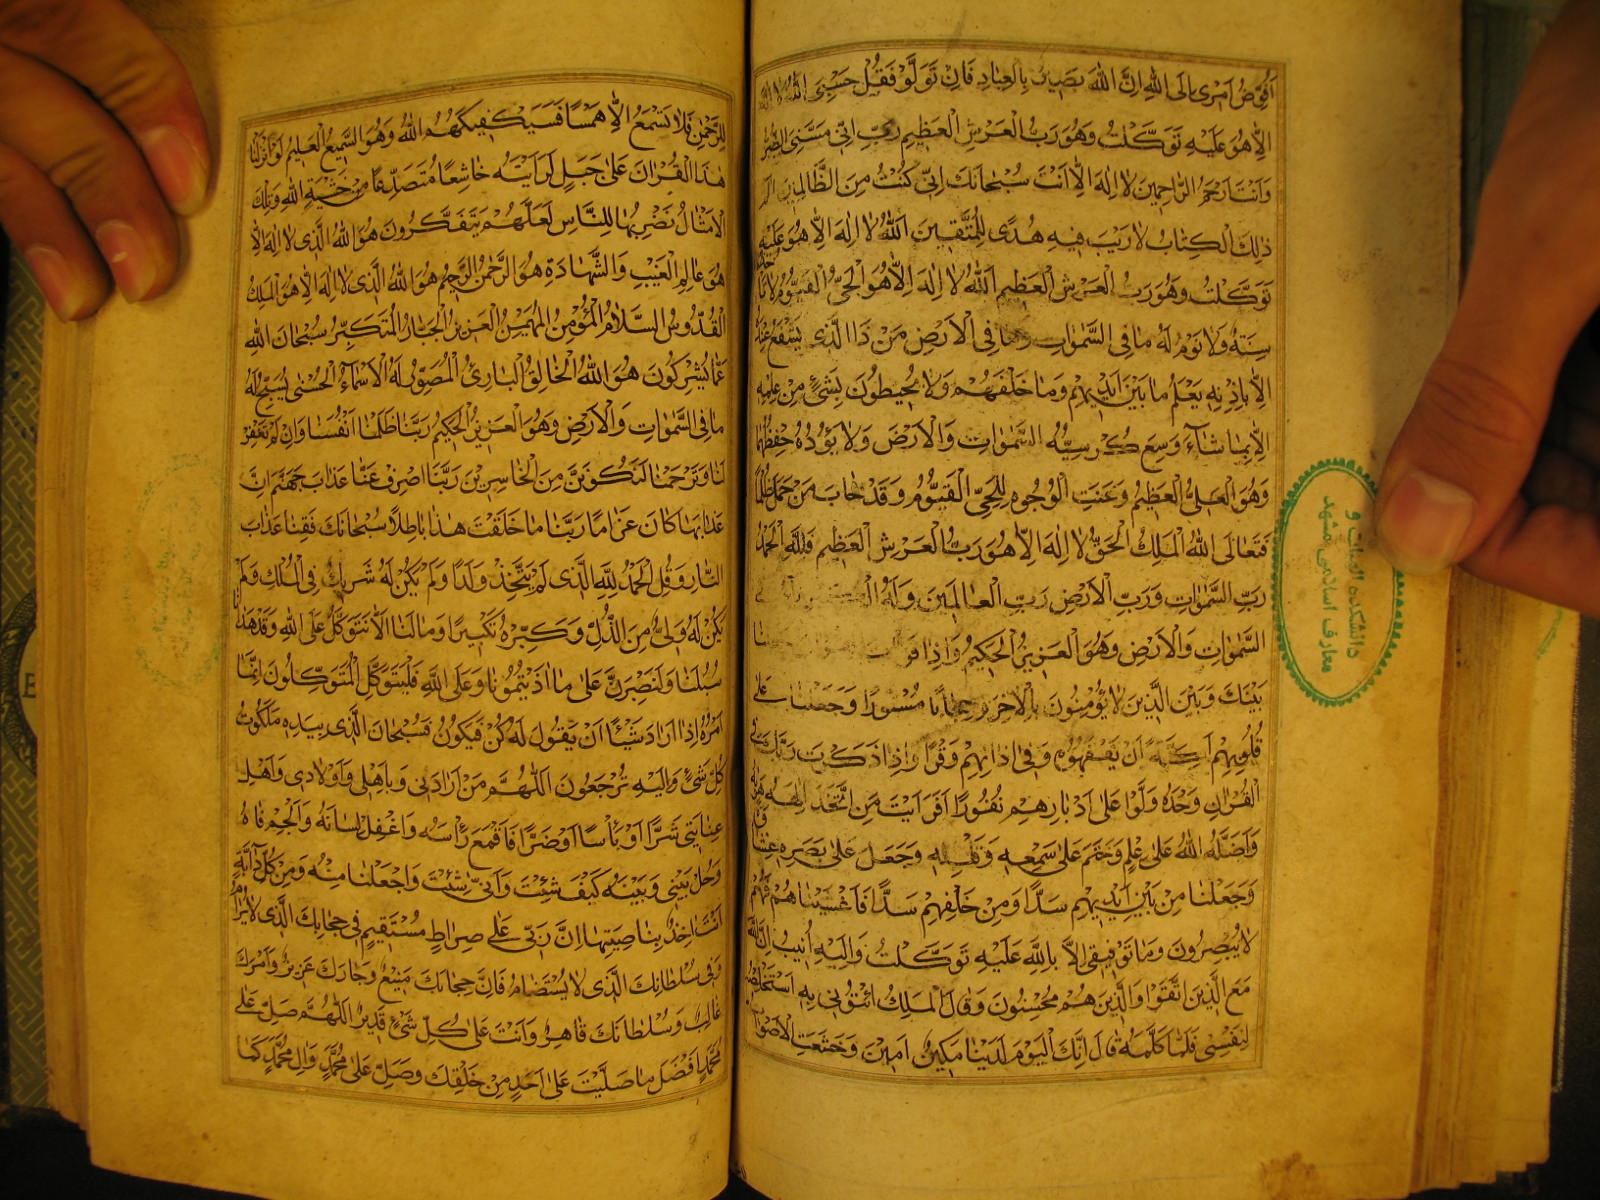 اُفَوِّضُ اَمْرى اِلَى اللهِ اِنَّ اللهَ بَصيرٌ بِالْعِبادِ فَاِنْ تَوَلَّوْ فَقُلْ حَسْبِىَ اللهُ لا اِلهَ
اِلاّ هُوَ عَلَيْهِ تَوَكَّلْتُ وَهُوَ رَبُّ الْعَرْشِ الْعَظيمِ رَبِّ اِنّى مَسَّنِىَ الضُّرُّ
وَاَنْتَ اَرْحَمُ الرّاحِمينَ لا اِلهَ اِلاّ اَنْتَ سُبْحانَكَ اِنّى كُنْتُ مِنَ الظّالِمينَ الم
ذلِكَ الْكِتابُ لا رَيْبَ فيهِ هُدًى لِلْمُتَّقينَ اَللهُ لا اِلهَ اِلاّ هُوَ عَلَيْهِ
تَوَكَّلْتُ وَهُوَ رَبُّ الْعَرْشِ الْعَظيمِ اَللهُ لا اِلهَ اِلاّ هُوَ الْحَىُّ الْقَيُّومُ لا تَأْخُذُهُ
سِنَةٌ وَلا نَوْمٌ لَهُ ما فِى السَّمواتِ وَما فِى الْاَرْضِ مَنْ ذَا الَّذى يَشْفَعُ عِنْدَهُ
اِلاّ بِاِذْنِهِ يَعْلَمُ ما بَيْنَ اَيْديهِمْ وَما خَلْفَهُمْ وَلا يُحيطُونَ بِشَىْءٍ مِنْ عِلْمِهِ
اِلاّ بِما شاءَ وَسِعَ كُرْسِيُّهُ السَّمواتِ وَالْاَرْضَ وَلا يَؤُدُهُ حِفْظُهُما
وَهُوَ الْعَلِىُّ الْعَظيمُ وَعَنَتِ الْوُجُوهُ لِلْحَىِّ الْقَيُّومِ وَقَدْ خابَ مَنْ حَمَلَ ظُلْمًا
فَتَعالَى اللهُ الْمَلِكُ الْحَقُّ لا اِلهَ اِلاّ هُوَ رَبُّ الْعَرْشِ الْعَظيمِ فَلِلّهِ الْحَمْدُ
رَبِّ السَّمواتِ وَرَبِّ الْاَرْضِ رَبِّ الْعالَمينَ وَلَهُ
السَّمواتِ وَالْاَرْضِ وَهُوَ الْعَزيزُ الْحَكيمُ وَاِذا
بَيْنَكَ وَبَيْنَ الَّذينَ لا يُؤْمِنُونَ بِالْاخِرَةِ حِجابًا مَسْتُورًا وَجَعَلْنا عَلى
قُلُوبِهِمْ اَكِنَّةً اَنْ يَفْقَهُوهُ وَفى اذانِهِمْ وَقْرًا وَاِذا ذَكَرْتَ رَبَّكَ فِى
الْقُرْانِ وَحْدَهُ وَلَّوْا عَلى اَدْبارِهِمْ نُفُورًا اَفَرَاَيْتَ مَنِ اتَّخَذَ اِلهَهُ هَواهُ
وَاَضَلَّهُ اللهُ عَلى عِلْمٍ وَخَتَمَ عَلى سَمْعِهِ وَقَلْبِهِ وَجَعَلَ عَلى بَصَرِهِ غِشاوَةً
وَجَعَلْنا مِنْ بَيْنِ اَيْديهِمْ سَدًّا وَمِنْ خَلْفِهِمْ سَدًّا فَاَغْشَيْناهُمْ فَهُمْ
لا يُبْصِرُونَ وَما تَوْفيقى اِلاّ بِاللهِ عَلَيْهِ تَوَكَّلْتُ وَاِلَيْهِ اُنيبُ اِنَّ اللهَ
مَعَ الَّذينَ اتَّقَوْا وَالَّذينَ هُمْ مُحْسِنُونَ وَقالَ الْمَلِكُ ائْتُونى بِهِ اَسْتَخْلِصْهُ
لِنَفْسى فَلَمّا كَلَّمَهُ قالَ اِنَّكَ الْيَوْمَ لَدَيْنا مَكينٌ اَمينٌ وَخَشَعَتِ الْاَصْواتُ
دانشكده الهيات و
معارف اسلامى مشهد
لِلرَّحْمنِ فَلا تَسْمَعُ اِلاّ هَمْسًا فَسَيَكْفيكَهُمُ اللهُ وَهُوَ السَّميعُ الْعَليمُ لَوْ اَنْزَلْنا
هذَا الْقُرْانَ عَلى جَبَلٍ لَرَاَيْتَهُ خاشِعًا مُتَصَدِّعًا مِنْ خَشْيَةِ اللهِ وَتِلْكَ
الْاَمْثالُ نَضْرِبُها لِلنّاسِ لَعَلَّهُمْ يَتَفَكَّرُونَ هُوَ اللهُ الَّذى لا اِلهَ اِلاّ
هُوَ عالِمُ الْغَيْبِ وَالشَّهادَةِ هُوَ الرَّحْمنُ الرَّحيمُ هُوَ اللهُ الَّذى لا اِلهَ اِلاّ هُوَ الْمَلِكُ
الْقُدُّوسُ السَّلامُ الْمُؤْمِنُ الْمُهَيْمِنُ الْعَزيزُ الْجَبّارُ الْمُتَكَبِّرُ سُبْحانَ اللهِ
عَمّا يُشْرِكُونَ هُوَ اللهُ الْخالِقُ الْبارِئُ الْمُصَوِّرُ لَهُ الْاَسْماءُ الْحُسْنى يُسَبِّحُ لَهُ
ما فِى السَّمواتِ وَالْاَرْضِ وَهُوَ الْعَزيزُ الْحَكيمُ رَبَّنا ظَلَمْنا اَنْفُسَنا وَاِنْ لَمْ تَغْفِرْ
لَنا وَتَرْحَمْنا لَنَكُونَنَّ مِنَ الْخاسِرينَ رَبَّنَا اصْرِفْ عَنّا عَذابَ جَهَنَّمَ اِنَّ
عَذابَها كانَ غَرامًا رَبَّنا ما خَلَقْتَ هذا باطِلاً سُبْحانَكَ فَقِنا عَذابَ
النّارِ وَقُلِ الْحَمْدُ لِلّهِ الَّذى لَمْ يَتَّخِذْ وَلَدًا وَلَمْ يَكُنْ لَهُ شَريكٌ فِى الْمُلْكِ وَلَمْ
يَكُنْ لَهُ وَلِىٌّ مِنَ الذُّلِّ وَكَبِّرْهُ تَكْبيرًا وَما لَنا اَلاّ نَتَوَكَّلَ عَلَى اللهِ وَقَدْ هَدانا
سُبُلَنا وَلَنَصْبِرَنَّ عَلى ما اذَيْتُمُونا وَعَلَى اللهِ فَلْيَتَوَكَّلِ الْمُتَوَكِّلُونَ اِنَّما
اَمْرُهُ اِذا اَرادَ شَيْئًا اَنْ يَقُولَ لَهُ كُنْ فَيَكُونُ فَسُبْحانَ الَّذى بِيَدِهِ مَلَكُوتُ
كُلِّ شَىْءٍ وَاِلَيْهِ تُرْجَعُونَ اَللّهُمَّ مَنْ اَرادَنى وَبِاَهْلى وَاَوْلادى وَاَهْلِ
عِنايَتى شَرًّا اَوْ بَأْسًا اَوْ ضَرًّا فَاقْمَعْ رَأْسَهُ وَاعْقِلْ لِسانَهُ وَالْجُمْ فاهُ
وَحُلْ بَيْنى وَبَيْنَهُ كَيْفَ شِئْتَ وَاَنّى شِئْتَ وَاجْعَلْنا مِنْهُ وَمِنْ كُلِّ دابَّةٍ
اَنْتَ اخِذٌ بِناصِيَتِها اِنَّ رَبّى عَلى صِراطٍ مُسْتَقيمٍ فى حِجابِكَ الَّذى لا يُرامُ
وَفى سُلْطانِكَ الَّذى لا يُسْتَضامُ فَاِنَّ حِجابَكَ مَنيعٌ وَجارَكَ عَزيزٌ وَاَمْرَكَ
غالِبٌ وَسُلْطانَكَ قاهِرٌ وَاَنْتَ عَلى كُلِّ شَىْءٍ قَديرٌ اَللّهُمَّ صَلِّ عَلى
مُحَمَّدٍ اَفْضَلَ ما صَلَّيْتَ عَلى اَحَدٍ مِنْ خَلْقِكَ وَصَلِّ عَلى مُحَمَّدٍ وَالِ مُحَمَّدٍ كَما